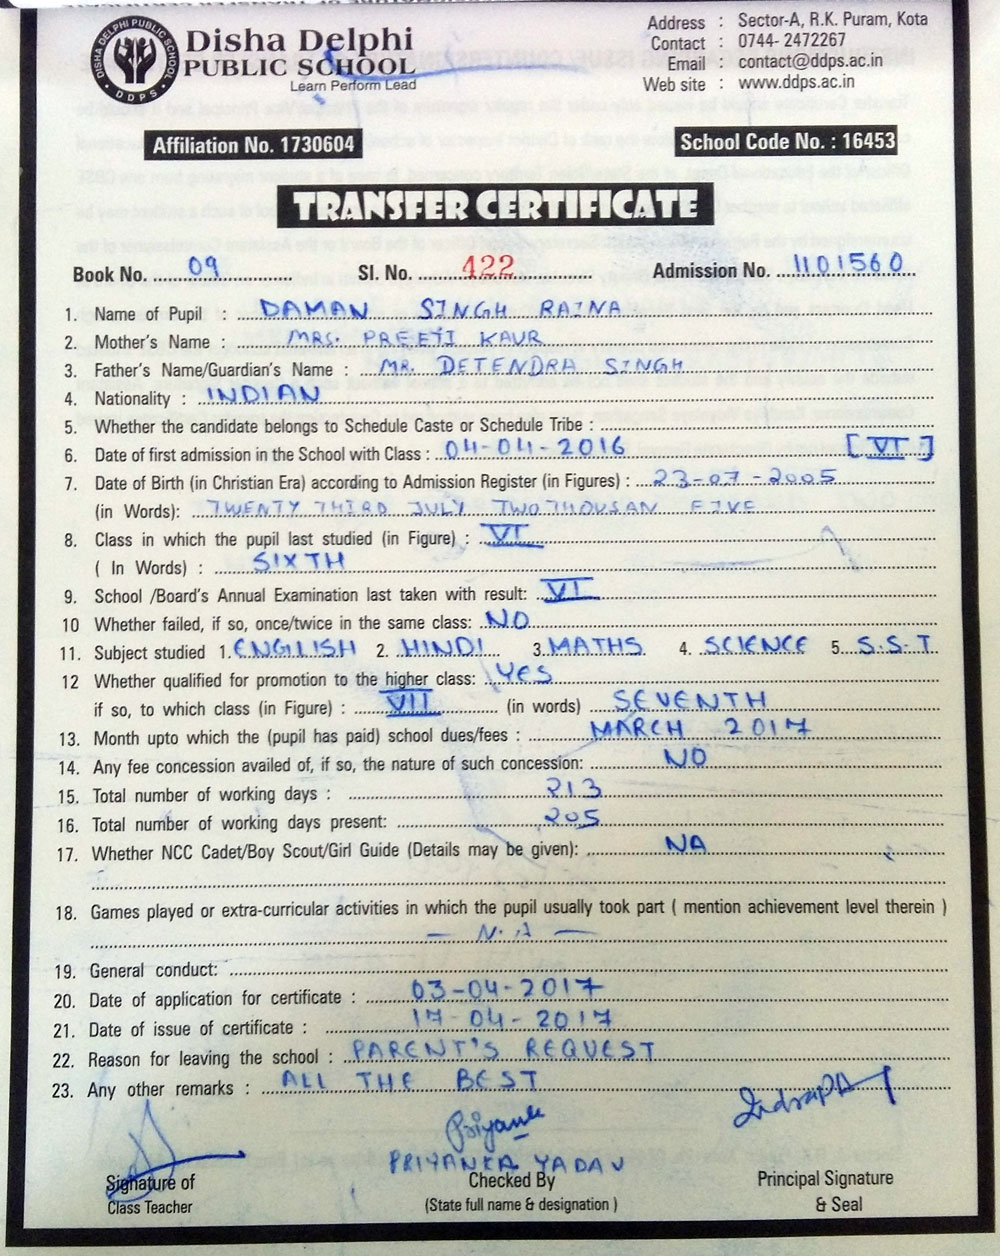 DISHA DELPHI PUBLIC SCHOOL
DDPS
Disha Delphi
PUBLIC SCHOOL
Learn Perform Lead
Address : Sector-A, R.K. Puram, Kota
Contact : 0744- 2472267
Email : contact@ddps.ac.in
Web site : www.ddps.ac.in
Affiliation No. 1730604
School Code No. : 16453
TRANSFER CERTIFICATE
Book No. 09 Sl. No. 422 Admission No. 1101560
1. Name of Pupil : DAMAN SINGH RAINA
2. Mother's Name : MRS. PREETI KAUR
3. Father's Name/Guardian's Name : MR. DETENDRA SINGH
4. Nationality : INDIAN
5. Whether the candidate belongs to Schedule Caste or Schedule Tribe :
6. Date of first admission in the School with Class : 04-04-2016 [VI]
7. Date of Birth (in Christian Era) according to Admission Register (in Figures) : 23-07-2005
(in Words): TWENTY THIRD JULY TWO THOUSAN FIVE
8. Class in which the pupil last studied (in Figure) : VI
( In Words) : SIXTH
9. School /Board's Annual Examination last taken with result: VI
10 Whether failed, if so, once/twice in the same class: NO
11. Subject studied 1. ENGLISH 2. HINDI 3. MATHS 4. SCIENCE 5. S.S.T
12 Whether qualified for promotion to the higher class: YES
if so, to which class (in Figure) : VII (in words) SEVENTH
13. Month upto which the (pupil has paid) school dues/fees : MARCH 2017
14. Any fee concession availed of, if so, the nature of such concession: NO
15. Total number of working days : 213
16. Total number of working days present: 205
17. Whether NCC Cadet/Boy Scout/Girl Guide (Details may be given): NA
18. Games played or extra-curricular activities in which the pupil usually took part ( mention achievement level therein )
— N.A —
19. General conduct:
20. Date of application for certificate : 03-04-2017
21. Date of issue of certificate : 17-04-2017
22. Reason for leaving the school : PARENT'S REQUEST
23. Any other remarks : ALL THE BEST
Priyanka
PRIYANKA YADAV
Signature of
Class Teacher
Checked By
(State full name & designation )
Principal Signature
& Seal